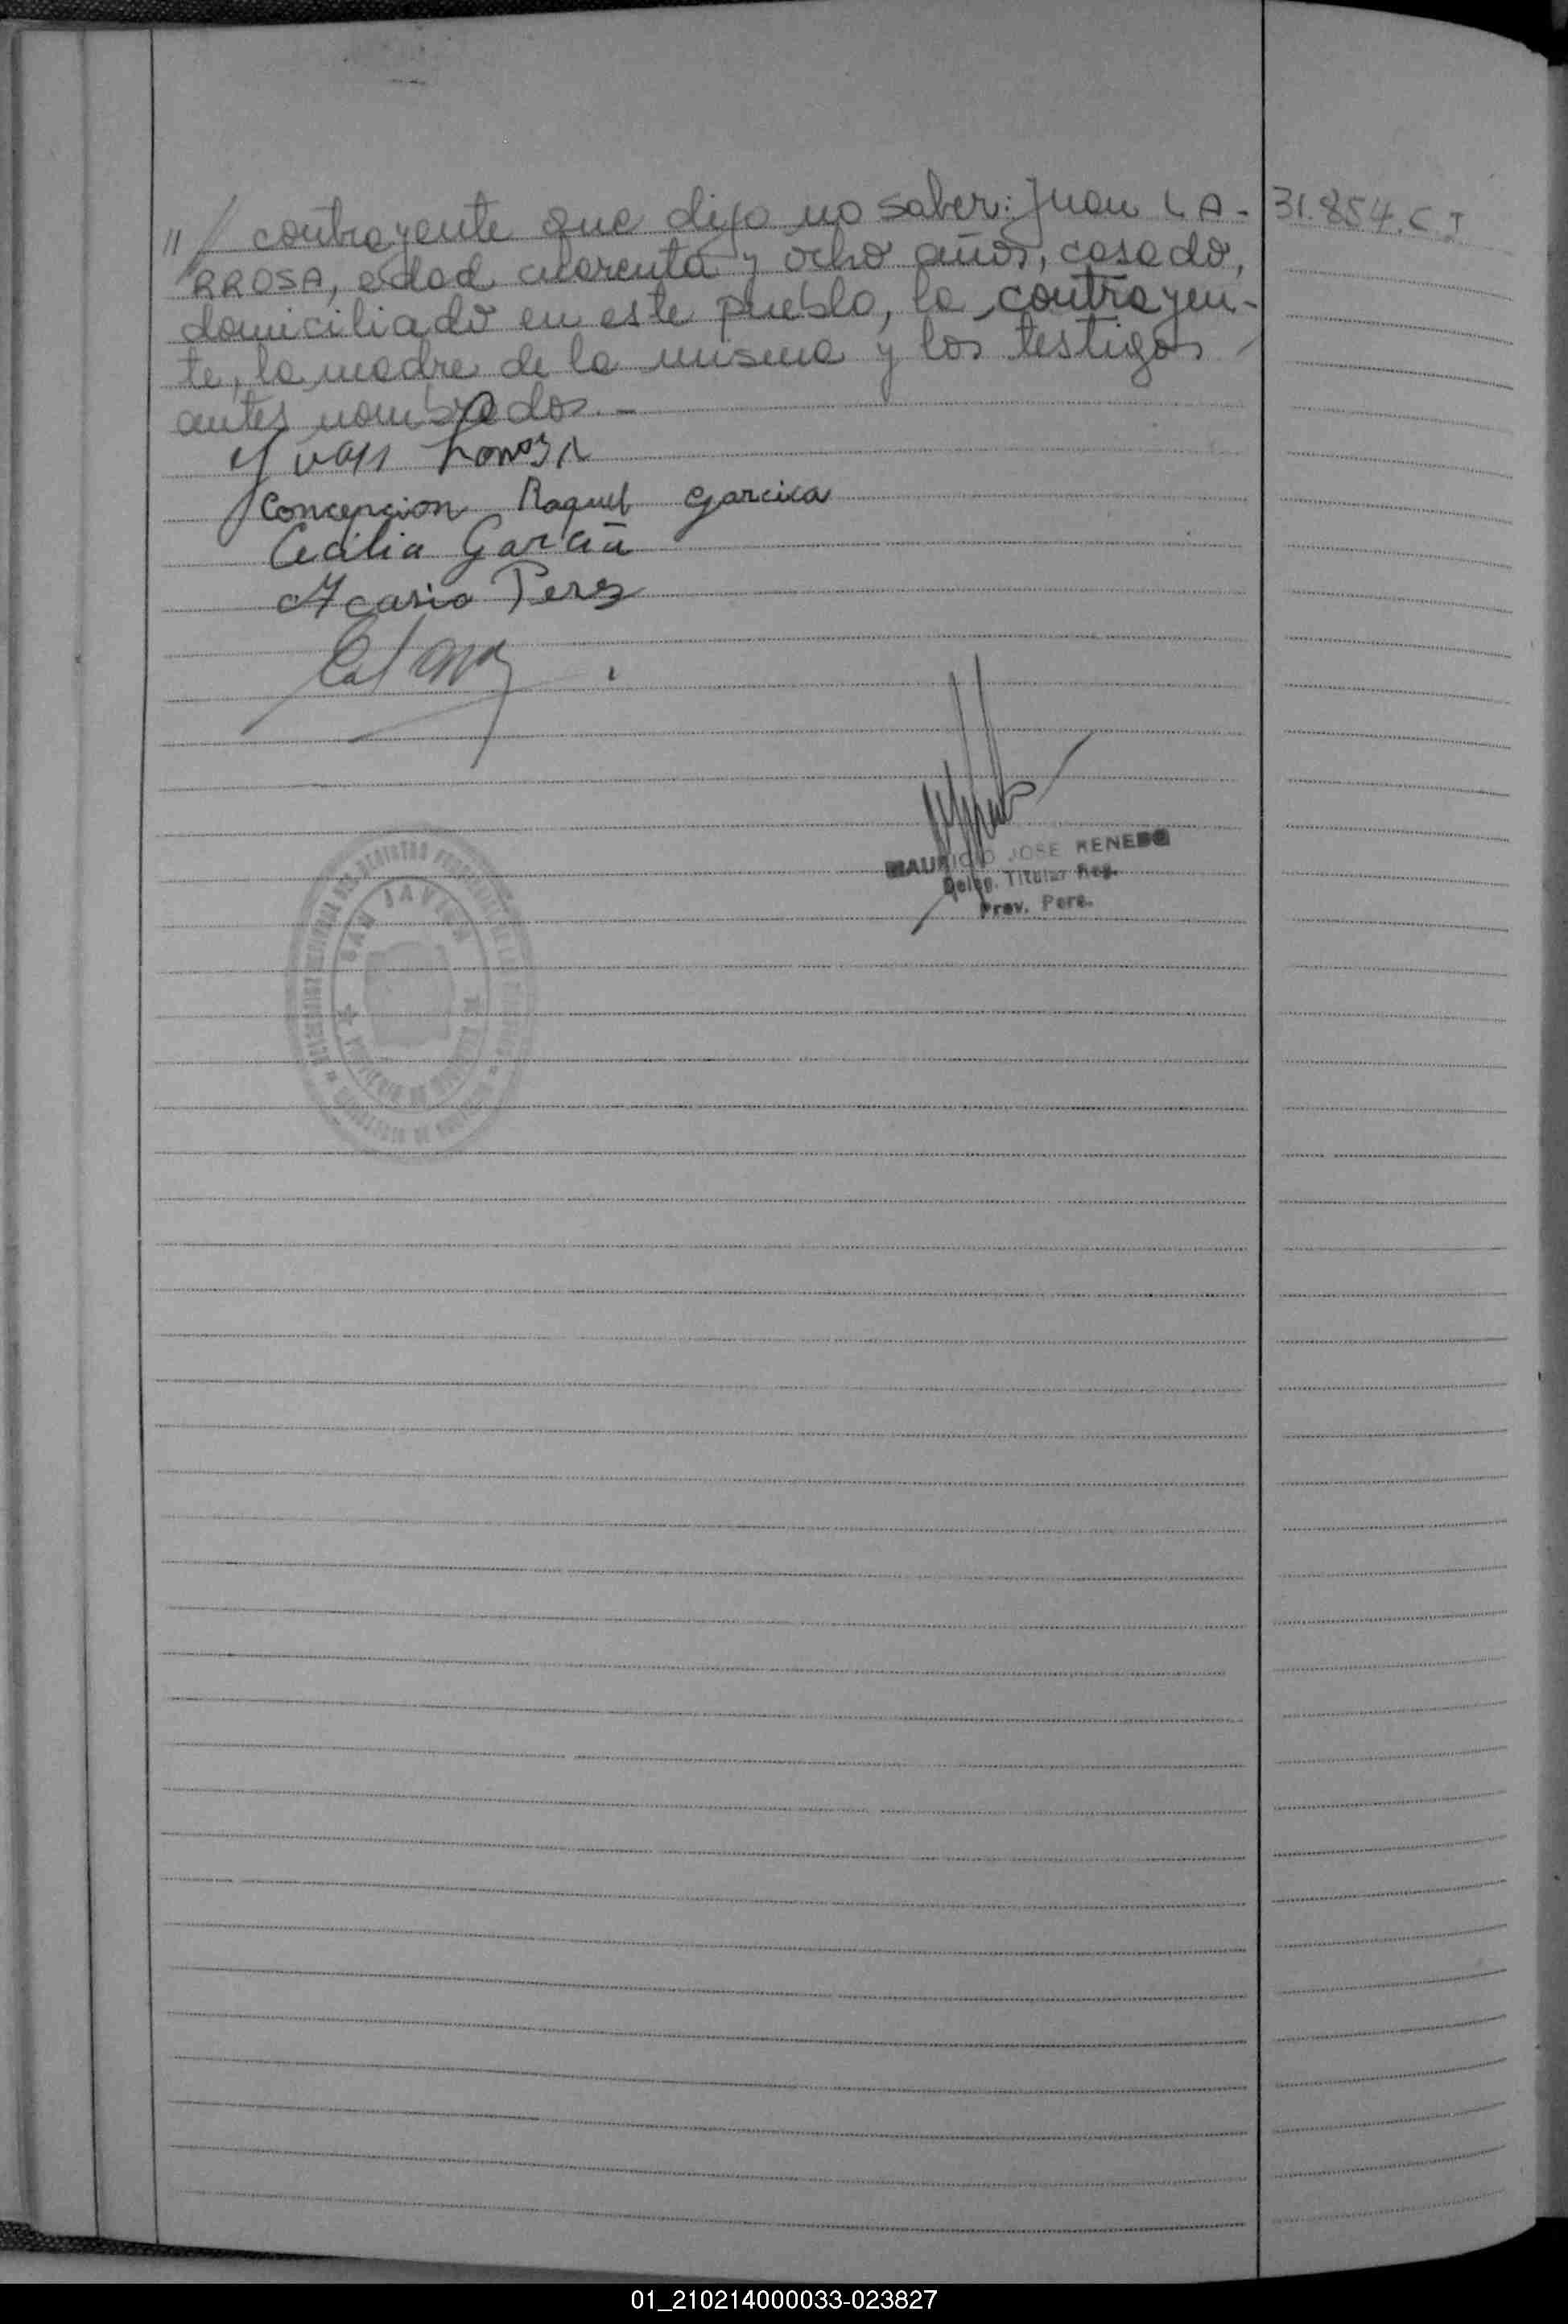 // contrayente que dijo no saber: Juan LA-
RROSA, edad cuarenta y ocho años, casado,
domiciliado en este pueblo, la contrayen-
te, la madre de la misma y los testigos
antes nombrados.-
31.854.C.I
Juan Larrosa
Concepcion Raquel Garcica
Cecilia Garcia
Acasio Perez
MAURICIO JOSE RENEDO
Deleg. Titular Reg.
Prov. Pers.
SAN JAVIER
01_210214000033-023827